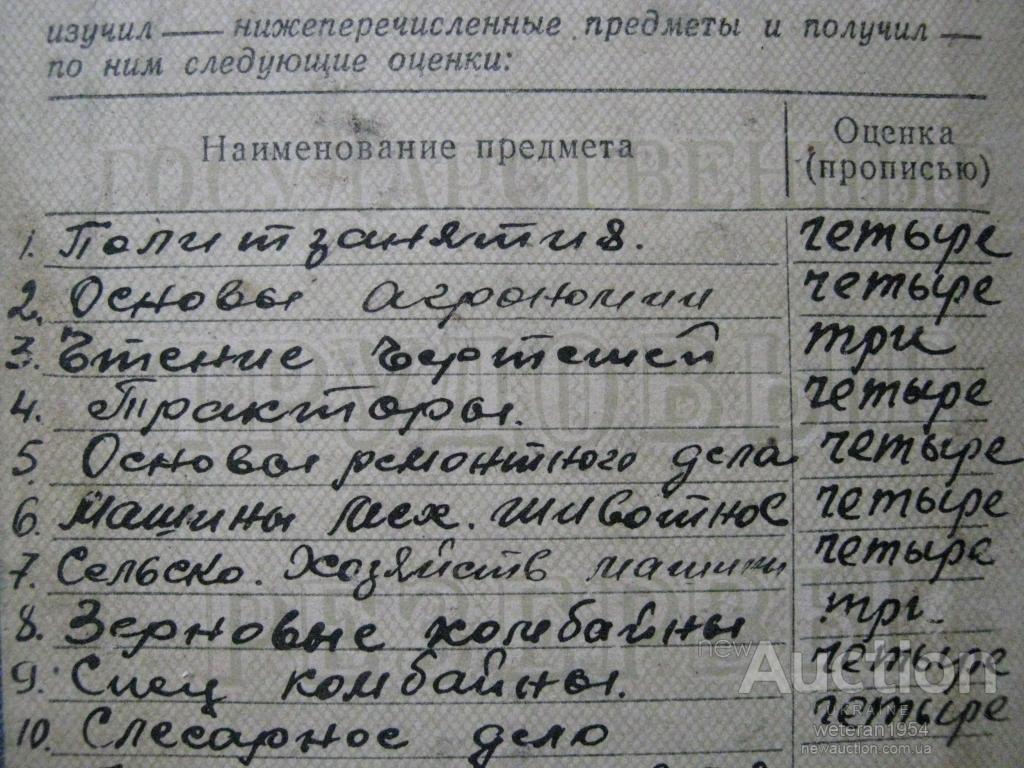 изучил — нижеперечисленные предметы и получил —
по ним следующие оценки:
Наименование предмета Оценка (прописью)
1. Политзанятия. четыре
2. Основы агрономии четыре
3. Чтение чертежей три
4. Тракторы. четыре
5 Основы ремонтного дела четыре
6. Машины мех. животнов четыре
7. Сельско. Хозяйств машины четыре
8. Зерновые комбайны три
9. Спец комбайны. четыре
10. Слесарное дело четыре
newAuction
UKRAINE
weteran1954
newauction.com.ua